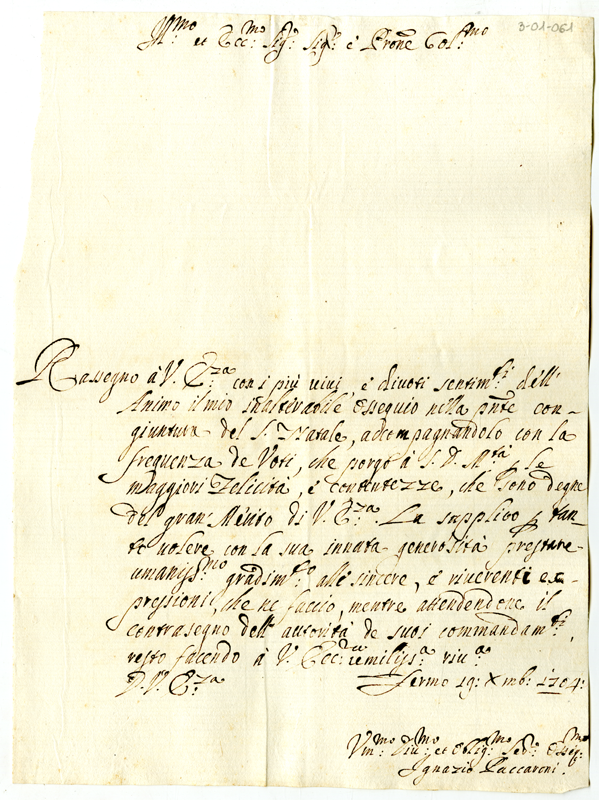 3-01-061
Ill:mo et Ecc:mo Sig:r Sig:r e Prone Col:mo
Rassegno à V. E:za con i più vivi, e divoti sentim:ti dell'
Animo il mio inalterabile Ossequio nella pnte con-
giuntura del S. Natale, accompagnandolo con la
frequenza de Voti, che porgo à S. D. M:tà, le
maggiori Felicità, e contentezze, che sono degne
del gran Merito di V. E:za. La supplico p tan-
to volere con la sua innata generosità prestare
umaniss:mo gradim:to alle sincere, e riverenti ex-
pressioni, che ne faccio, mentre attendendone il
contrasegno dell' autorità de suoi commandam:ti,
resto facendo à V. Ecc:
D. V. E:za Fermo 19: Xmb: 1704:
et Oblig:mo
Ignazio Paccaroni